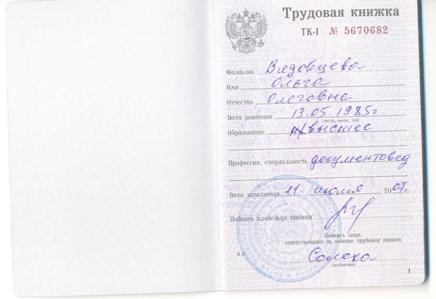 Трудовая книжка
ТК-I № 5670682
Фамилия Видовцева
Имя Ольга
Отчество Олеговна
Дата рождения 13.05.1985г
(число, месяц, год)
Образование н/высшее
Профессия, специальность документовед
Дата заполнения 11 июля 2007 г.
Подпись владельца книжки
Подпись лица,
ответственного за ведение трудовых книжек
М.П.
(разборчиво)
1